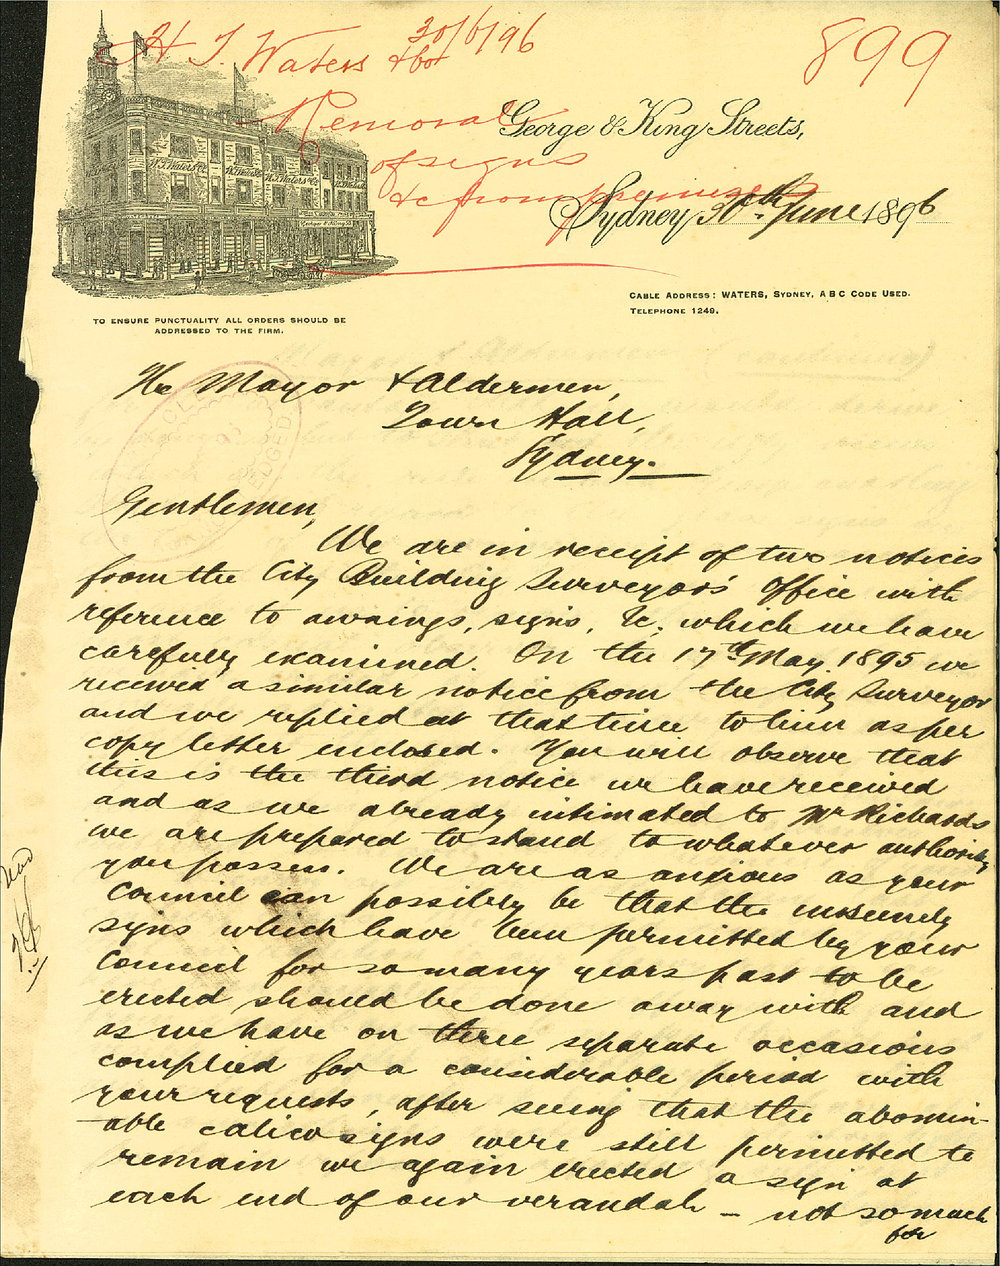 H. T. Waters & Co
30/6/96
899
Removal
of signs
&c from premises
George & King Streets,
Sydney 30th June 1896
CABLE ADDRESS: WATERS, SYDNEY, A B C CODE USED.
TELEPHONE 1249.
TO ENSURE PUNCTUALITY ALL ORDERS SHOULD BE
ADDRESSED TO THE FIRM.
The Mayor & Aldermen,
Town Hall,
Sydney.
Gentlemen,
We are in receipt of two notices
from the City Building Surveyor's Office with
reference to awnings, signs, &c. which we have
carefully examined. On the 17th May 1895 we
received a similar notice from the City Surveyor
and we replied at that time to him as per
copy letter enclosed. You will observe that
this is the third notice we have received
and as we already intimated to Mr Richards
we are prepared to stand to whatever authority
you possess. We are as anxious as your
Council can possibly be that the unseemly
signs which have been permitted by your
Council for so many years past to be
erected should be done away with and
as we have on three separate occasions
complied for a considerable period with
your requests, after seeing that the abomin-
able calico signs were still permitted to
remain we again erected a sign at
each end of our verandah - not so much
for